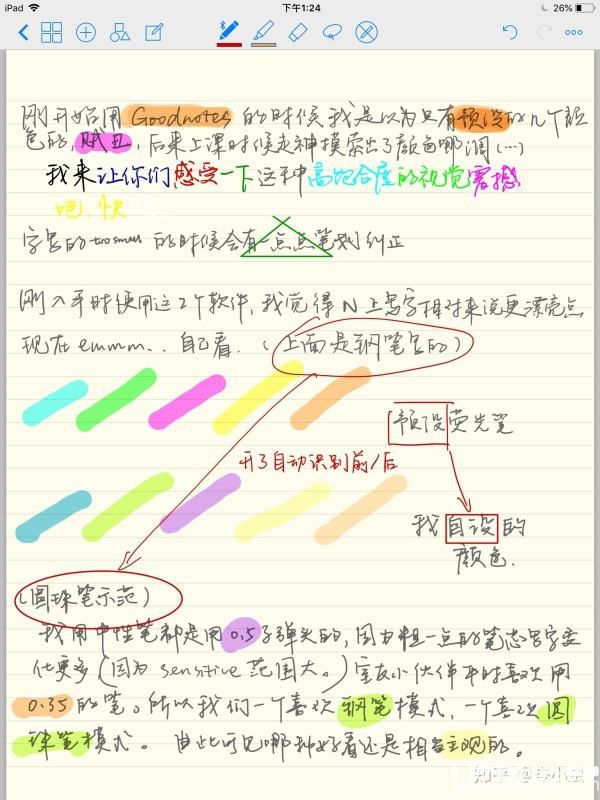 iPad 下午1:24 26%
刚开始用 Goodnotes 的时候我是以为只有预设的几个颜
色的,贼丑,后来上课时候走神摸索出了颜色那调(...)
我来让你们感受一下这种高饱合度的视觉震撼
吧,快
字写的too small 的时候会有一点点笔划纠正
刚入手时使用这2个软件,我觉得N上写字相对来说更漂亮点
现在emmm... 自己看.(上面是钢笔写的)
预设荧光笔
开了自动识别前/后
我自设的
颜色.
(圆珠笔示范)
我用中性笔都是用0.5子弹头的,因为粗一点的笔芯写字变
化更多(因为sensitive范围大。)室友小伙伴平时喜欢用
0.35的笔。所以我们一个喜欢钢笔模式,一个喜欢圆
珠笔模式。由此可见哪种好看还是相当主观的。
知乎